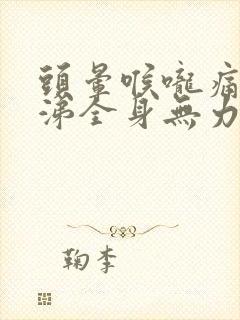 頭暈喉嚨痛
涕全身無力
鞠李